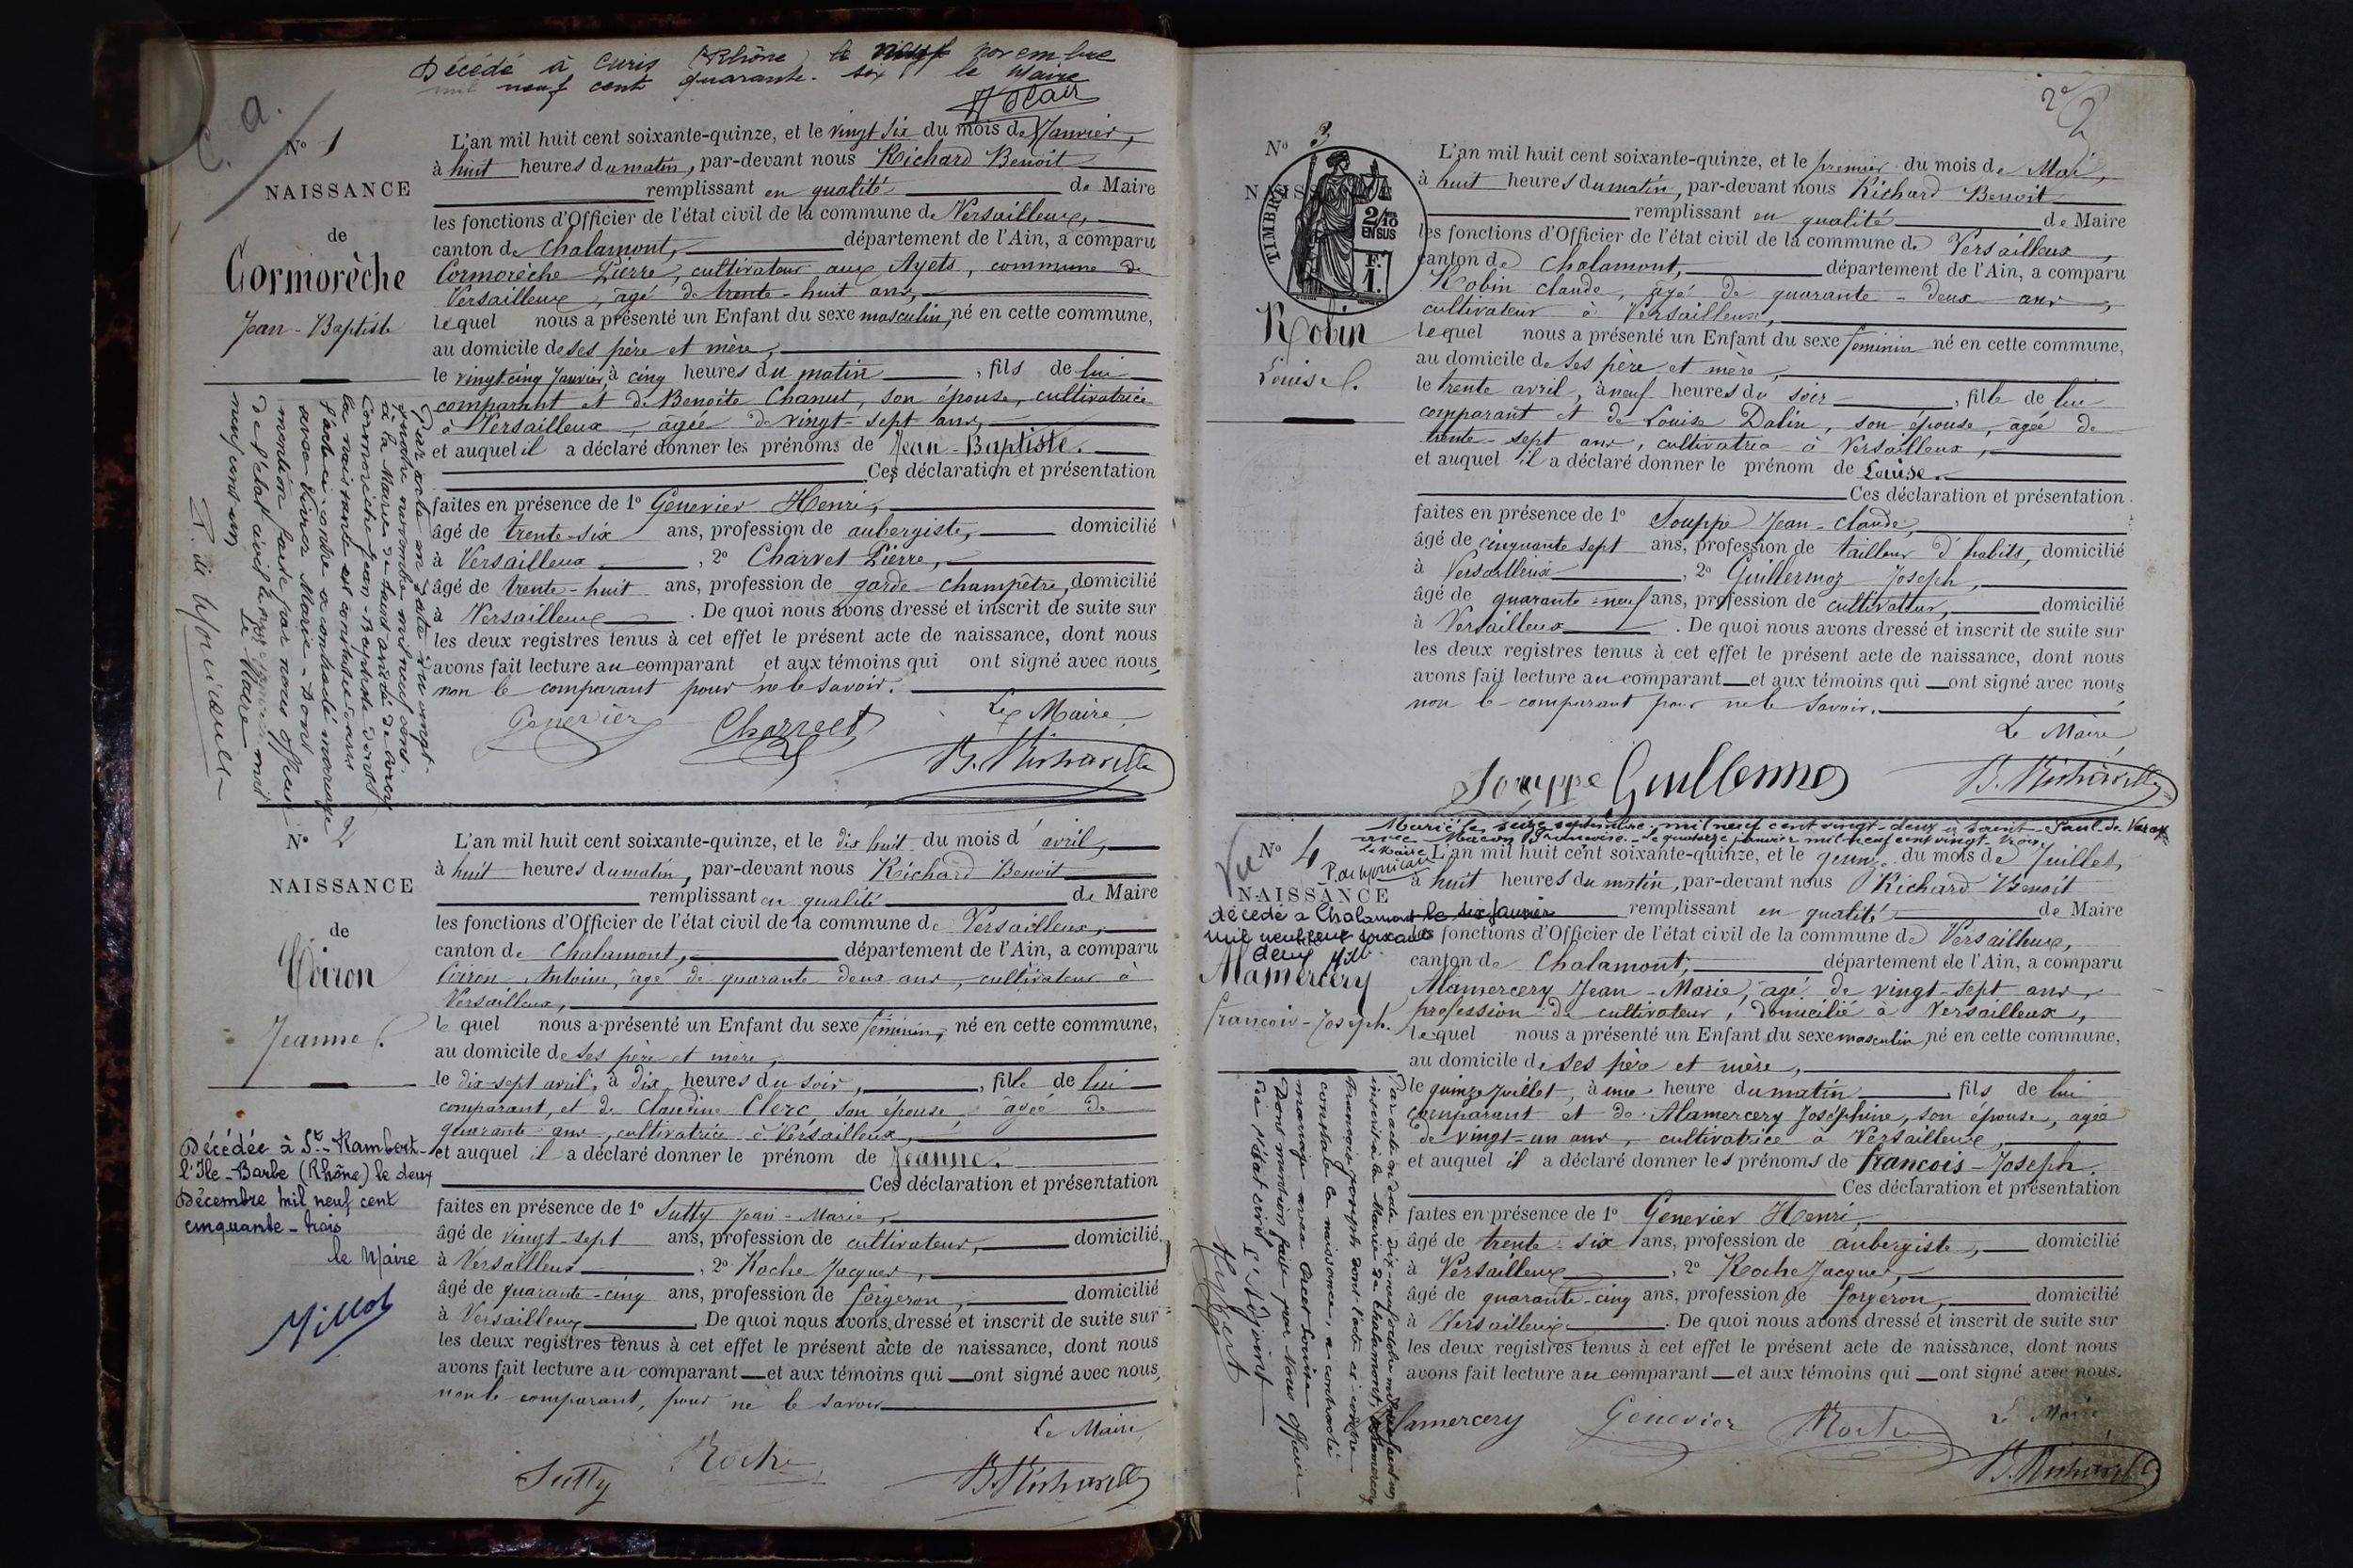 Décédé à Curis (Rhône) le neuf novembre
mil neuf cent quarante-six le Maire
C. a.
N° 1
NAISSANCE
de
Cormorèche
Jean-Baptiste
L'an mil huit cent soixante-quinze, et le vingt six du mois de Janvier,
à huit heures du matin, par-devant nous Richard Benoit
remplissant en qualité de Maire
les fonctions d'Officier de l'état civil de la commune de Versailleux,
canton de Chalamont, département de l'Ain, a comparu
Cormorèche Pierre, cultivateur aux Ayets, commune de
Versailleux, âgé de trente-huit ans,
lequel nous a présenté un Enfant du sexe masculin, né en cette commune,
au domicile de ses père et mère,
le vingt cinq Janvier, à cinq heures du matin, fils de lui
comparant et de Benoîte Chanut, son épouse, cultivatrice
à Versailleux, âgée de vingt-sept ans,
et auquel il a déclaré donner les prénoms de Jean-Baptiste.
Ces déclaration et présentation
faites en présence de 1° Genevier Henri,
âgé de trente-six ans, profession de aubergiste, domicilié
à Versailleux, 2° Charvet Pierre,
âgé de trente-huit ans, profession de garde-champêtre, domicilié
à Versailleux. De quoi nous avons dressé et inscrit de suite sur
les deux registres tenus à cet effet le présent acte de naissance, dont nous
avons fait lecture au comparant et aux témoins qui ont signé avec nous,
non le comparant pour ne le savoir.
Le Maire,
Genevier Charvet B. Richard
Par acte en date du vingt-
novembre mil neuf cent
à la Mairie de Saint André de Corcy
Cormorèche Jean-Baptiste dont
la naissance est constatée dans
l'acte ci-contre a contracté mariage
avec Marie - Dont
mention faite par nous officier
de l'état civil le mil
neuf cent un
Le Maire
N° 2
NAISSANCE
de
Coiron
Jeanne
L'an mil huit cent soixante-quinze, et le dix huit du mois d'avril,
à huit heures du matin, par-devant nous Richard Benoit
remplissant en qualité de Maire
les fonctions d'Officier de l'état civil de la commune de Versailleux,
canton de Chalamont, département de l'Ain, a comparu
Coiron Antoine, âgé de quarante deux ans, cultivateur à
Versailleux,
le quel nous a présenté un Enfant du sexe féminin, né en cette commune,
au domicile de ses père et mère,
le dix-sept avril, à dix heures du soir, fille de lui
comparant, et de Claudine Clerc, son épouse âgée de
quarante ans, cultivatrice à Versailleux,
et auquel il a déclaré donner le prénom de Jeanne.
Ces déclaration et présentation
faites en présence de 1° Sutty Jean-Marie,
âgé de vingt-sept ans, profession de cultivateur, domicilié
à Versailleux, 2° Roche Jacques,
âgé de quarante-cinq ans, profession de forgeron, domicilié
à Versailleux. De quoi nous avons dressé et inscrit de suite sur
les deux registres tenus à cet effet le présent acte de naissance, dont nous
avons fait lecture au comparant et aux témoins qui ont signé avec nous,
non le comparant, pour ne le savoir
Le Maire,
Sutty Roche B. Richard
Décédée à St-Rambert-
l'Ile-Barbe (Rhône) le deux
Décembre mil neuf cent
cinquante-trois
le Maire
Millot
2e
N° 3
NAISSANCE
TIMBRE
2/10 EN SUS
F. 1.
Robin
Louise
L'an mil huit cent soixante-quinze, et le premier du mois de Mai,
à huit heures du matin, par-devant nous Richard Benoit
remplissant en qualité de Maire
les fonctions d'Officier de l'état civil de la commune de Versailleux,
canton de Chalamont, département de l'Ain, a comparu
Robin Claude, âgé de quarante-deux ans,
cultivateur à Versailleux,
lequel nous a présenté un Enfant du sexe féminin né en cette commune,
au domicile de ses père et mère,
le trente avril, à neuf heures du soir, fille de lui
comparant et de Louise Dalin, son épouse, âgée de
trente-sept ans, cultivatrice à Versailleux,
et auquel il a déclaré donner le prénom de Louise.
Ces déclaration et présentation
faites en présence de 1° Souppe Jean-Claude,
âgé de cinquante sept ans, profession de tailleur d'habits, domicilié
à Versailleux, 2° Guillermoz Joseph,
âgé de quarante-neuf ans, profession de cultivateur, domicilié
à Versailleux. De quoi nous avons dressé et inscrit de suite sur
les deux registres tenus à cet effet le présent acte de naissance, dont nous
avons fait lecture au comparant et aux témoins qui ont signé avec nous,
non le comparant pour ne le savoir.
Le Maire
Souppe Guillermoz B. Richard
Marié le seize septembre mil neuf cent vingt-deux à Saint-Paul-de-Varax
avec Françoise. Le quatorze janvier mil neuf cent vingt-trois
Le Maire
Vu
N° 4
NAISSANCE
décédé à Chalamont le six Janvier
mil neuf cent soixante
deux
Mamercery
François-Joseph.
L'an mil huit cent soixante-quinze, et le quinze du mois de Juillet,
à huit heures du matin, par-devant nous Richard Benoit
remplissant en qualité de Maire
les fonctions d'Officier de l'état civil de la commune de Versailleux,
canton de Chalamont, département de l'Ain, a comparu
Alamercery Jean-Marie, âgé de vingt-sept ans,
profession de cultivateur, domicilié à Versailleux,
lequel nous a présenté un Enfant du sexe masculin, né en cette commune,
au domicile de ses père et mère,
le quinze Juillet, à une heure du matin fils de lui
comparant et de Alamercery Joséphine, son épouse, âgée
de vingt-un ans, cultivatrice à Versailleux,
et auquel il a déclaré donner les prénoms de François-Joseph.
Ces déclaration et présentation
faites en présence de 1° Genevier Henri,
âgé de trente-six ans, profession de aubergiste, domicilié
à Versailleux, 2° Roche Jacques,
âgé de quarante-cinq ans, profession de forgeron, domicilié
à Versailleux. De quoi nous avons dressé et inscrit de suite sur
les deux registres tenus à cet effet le présent acte de naissance, dont nous
avons fait lecture au comparant et aux témoins qui ont signé avec nous.
Le Maire
Alamercery Genevier Roche B. Richard
Par acte en date dix-neuf octobre mil neuf cent un
inscrit à la Mairie de Chalamont, Alamercery
François Joseph dont l'acte ci-contre
constate la naissance, a contracté
mariage avec Louise
Dont mention faite par Nous officier
de l'état civil. L'Adjoint